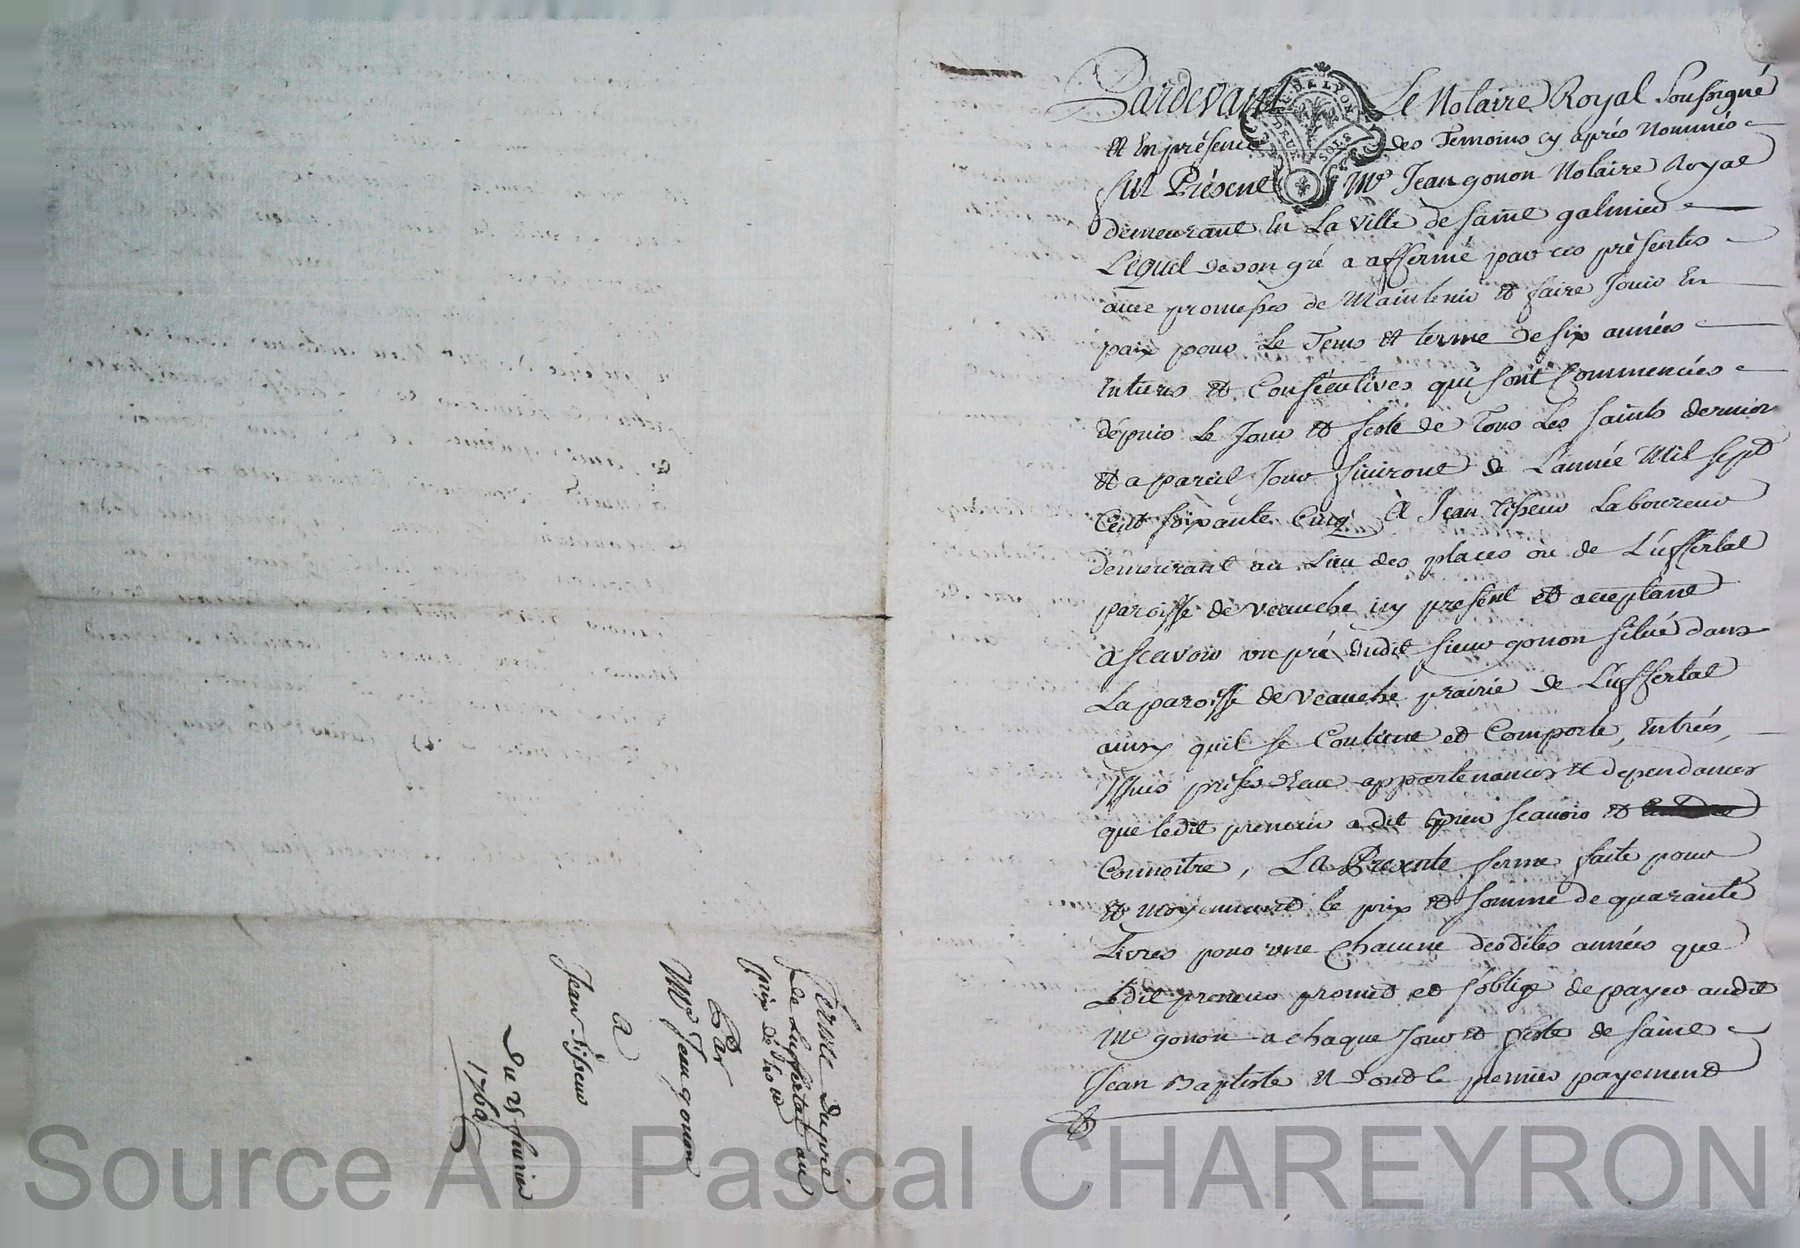 Pardevant Le Notaire Royal Soussigné
G. DE LYON
DEUX SOLS
et En présence des Temoins cy après Nommés
fut Présent Me Jean gonon Notaire Royal
demeurant En La Ville de saint galmier
Lequel de son gré a affermé par ces présentes
avec promesses de Maintenir et faire Jouir En
paix pour Le Tems et terme de six années
Entieres et Consécutives qui sont Commencées
dépuis Le Jour et feste de Tous Les saints dernier
et a pareil Jour finiront de L'année Mil sept
Cent soixante Cinq A Jean tisseur Laboureur
demeurant au Lieu des places ou de L'uffertal
paroisse de veauche icy present et acceptant
a sçavoir un pré dudit sieur gonon situé dans
La paroisse de veauche prairie de L'uffertal
ainsy quil se Contient et Comporte, Entrées,
Issues prises d'eau appartenances et dependances
que ledit preneur a dit bien scavoir et
Connoitre, La Presente ferme faite pour
et moyennant le prix et somme de quarante
Livres pour une Chacune desdites années que
Ledit preneur promet et s'oblige de payer audit
Me gonon a chaque Jour et feste de saint
Jean Baptiste et dont le premier payement
Ferme du pré
de Luffertal au
prix de 40 #
Par
Me Jean gonon
a
Jean tisseur
Du 25 fevrier
1760
Source AD Pascal CHAREYRON